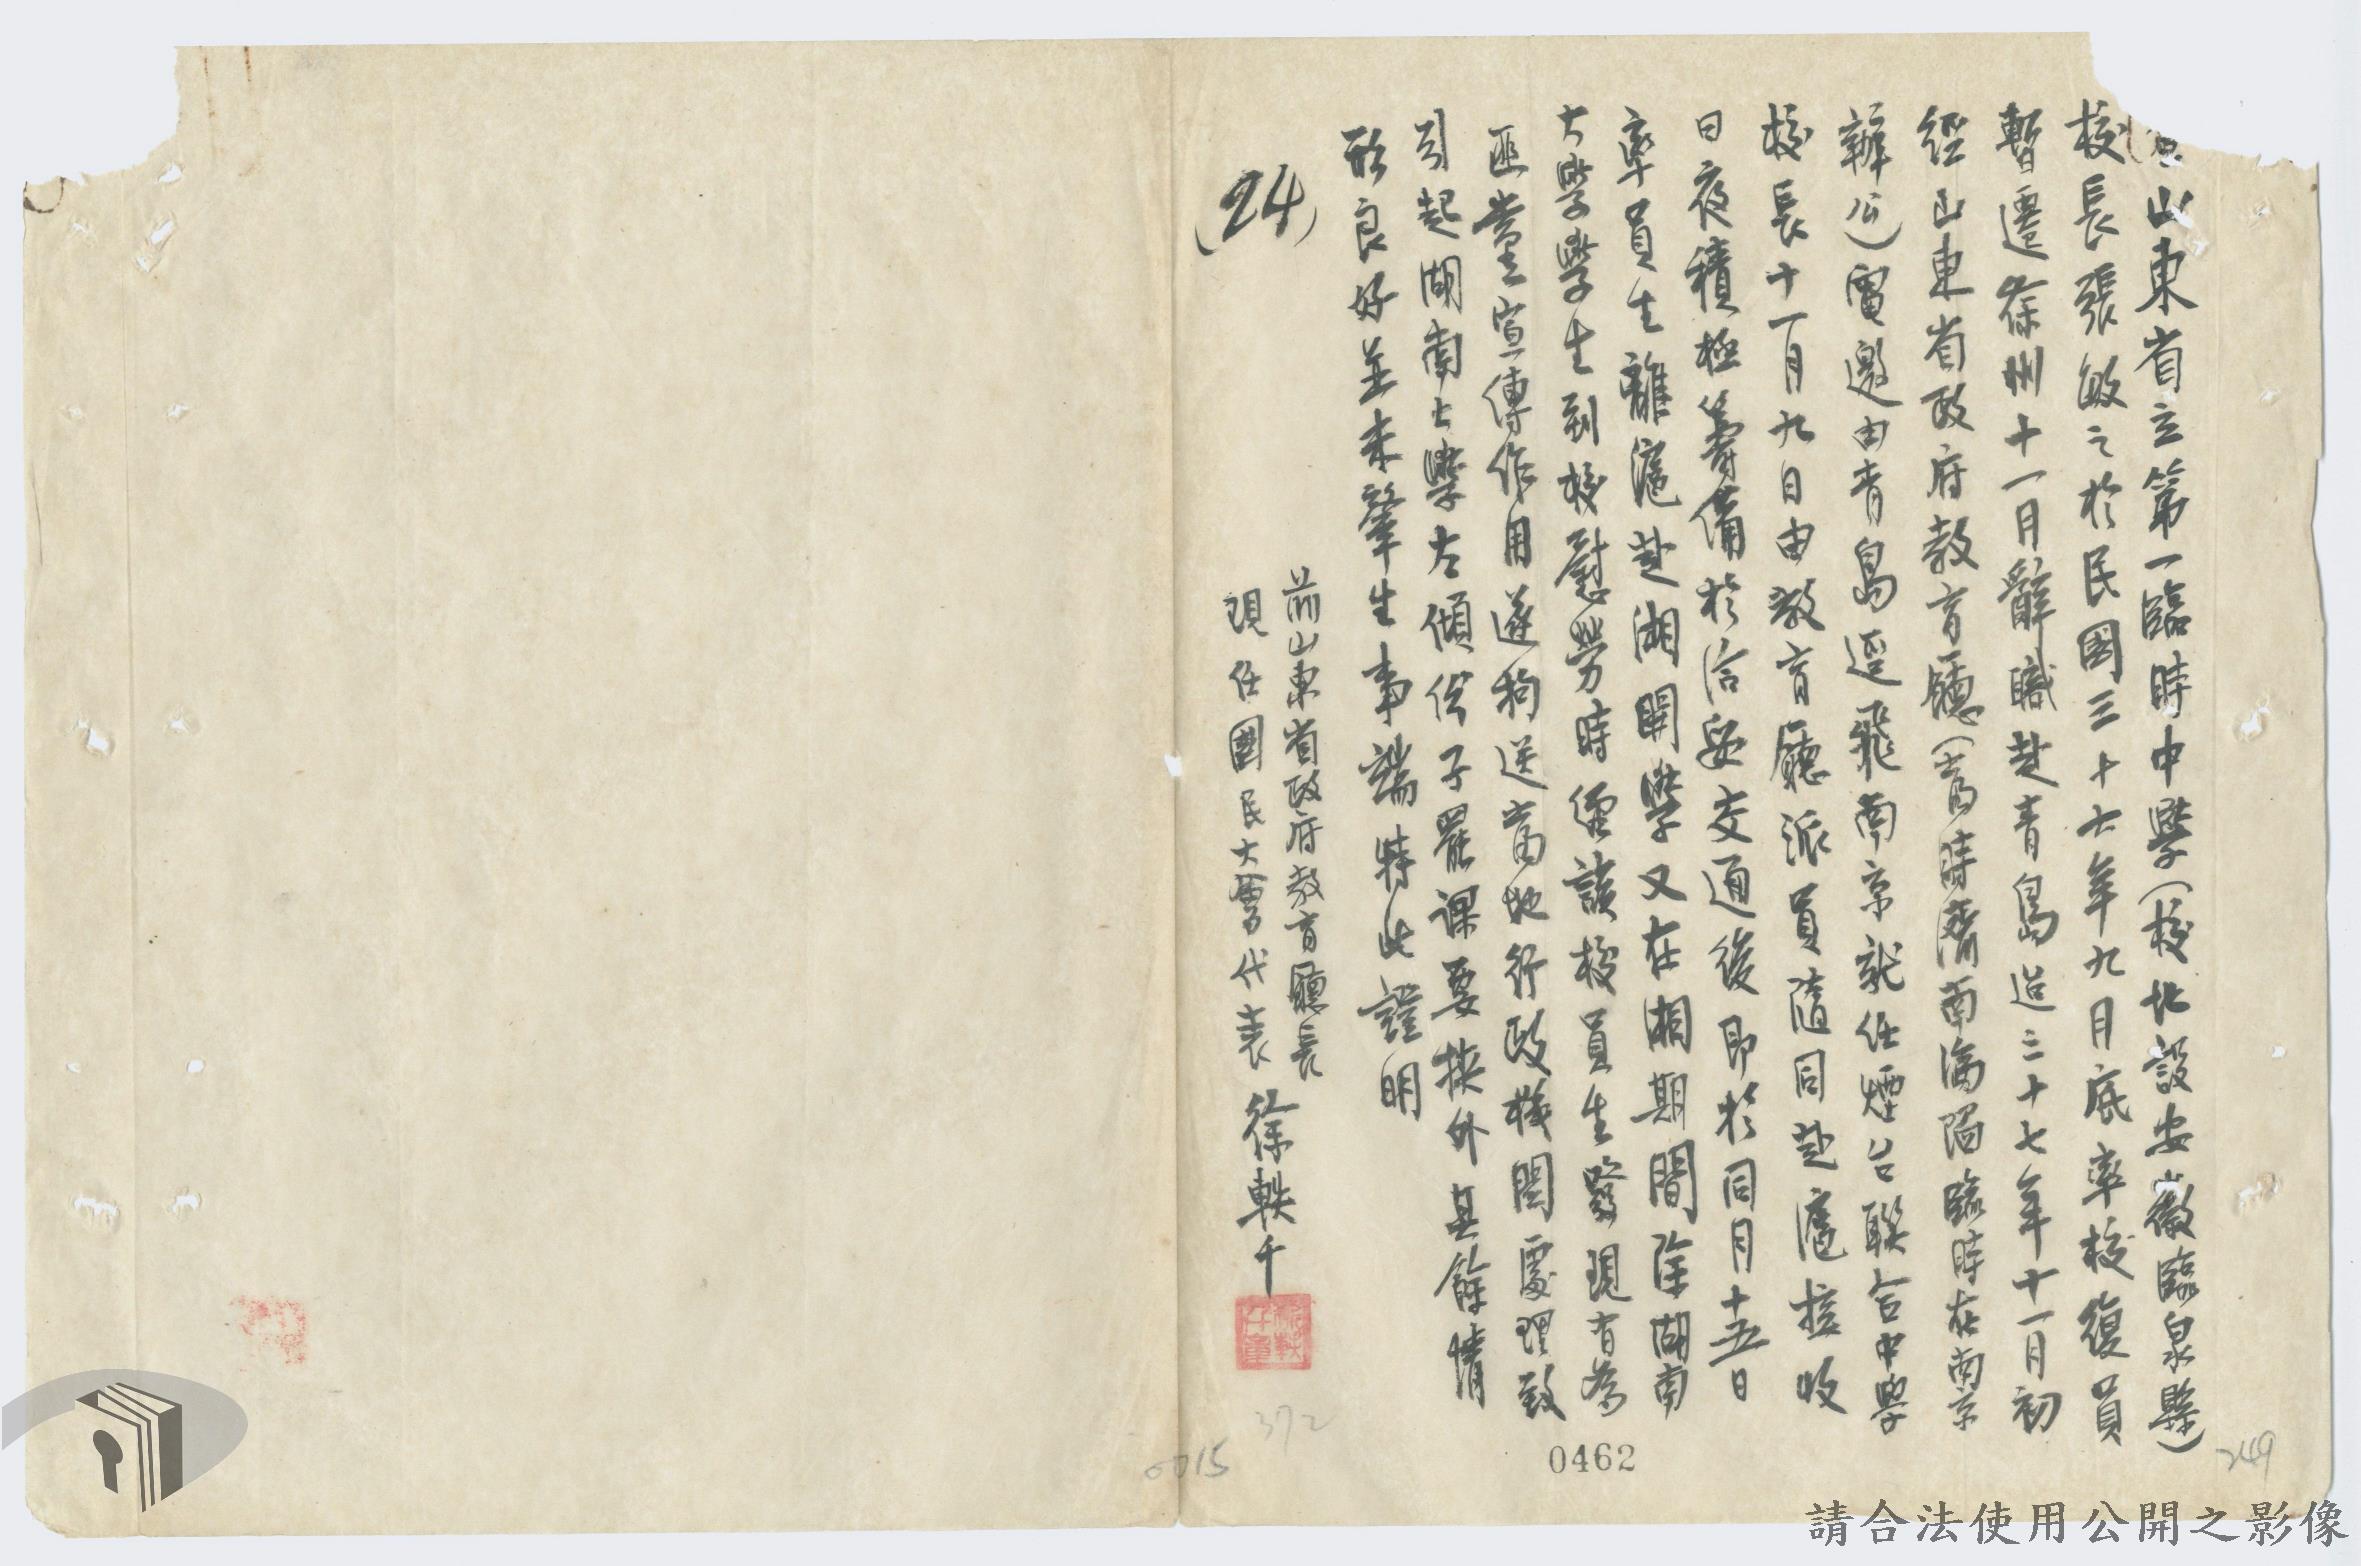 山東省立第一臨時中學(校址設安徽臨泉縣)
校長張敏之於民國三十七年九月底率校復員
暫遷徐州十一月辭職赴青島迨三十七年十一月初
經山東省政府教育廳(當時濟南淪陷臨時在南京
辦公)電邀由青島逕飛南京就任煙台聯合中學
校長十一月九日由教育廳派員隨同赴滬接收
日夜積極籌備於洽妥交通後即於同月十五日
率員生離滬赴湖開學又在湘期間除湖南
大學學生到校慰勞時經該校員生發現有為
匪黨宣傳作用遂拘送當地行政機關處理致
引起湖南大學左傾份子罷課要挾外其餘情
形良好並未肇生事端特此證明
前山東省政府教育廳長
現任國民大會代表 徐軼千
(24)
372
0015
0462
249
請合法使用公開之影像